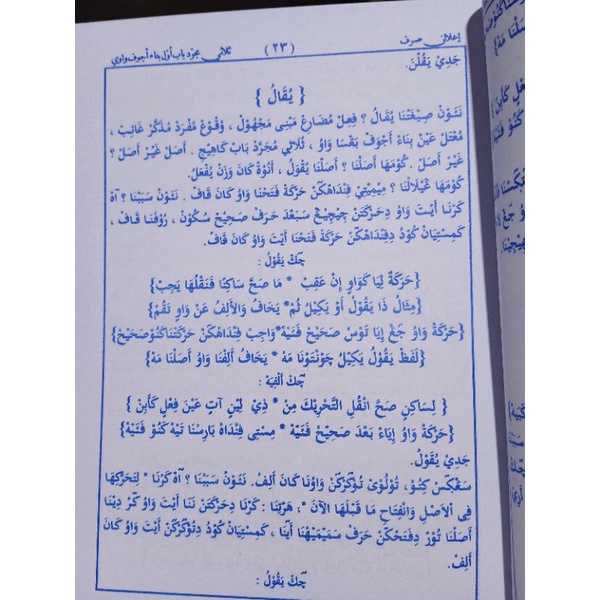 إعلال صرف (٢٣) ثلاثي مجرّد باب أوّل بناء أجوف واوي
جَدِيْ يَقُلْنَ.
{ يُقَالُ }
نَنَوْنْ صِيْغَتْنَا يُقَالُ ؟ فِعِلْ مُضَارِعْ مَبْنِى مَجْهُوْلْ ، وُقُوْعْ مُفْرَدْ مُذَكَّرْ غَائِبْ ،
مُعْتَلْ عَيْنْ بِنَاءْ أَجْوَفْ بَعْسَا وَاوُ ، ثُلَاثِي مُجَرَّدْ بَابْ كَاهِيجْ . أَصَلْ غَيْرْ أَصَلْ ؟
غَيْرْ أَصَلْ كُوْمَهَا أَصَلْنَا ؟ أَصَلْنَا يُقْوَلُ ، أَنُوْةْ كَانْ وَزَنْ يُفْعَلُ.
كُوْمَهَا عَيْلَالْنَا ؟ مِيْمِيْتِيْ فِنْدَاهْكَنْ حَرَكَةْ فَتَحْنَا وَاوُ كَانْ قَافْ . نَنَوْنْ سَبَبْنَا ؟ آهْ
كَرْنَا أَيْتْ وَاوُ دِحَرَكَتَنْ جِيْجِيْغْ سَبْعَدْ حَرَفْ صَحِيْحْ سُكُوْنْ ، رُوْفَنَا قَافْ ،
كَمِسْتِيَانْ كُوْدُ دِفِنْدَاهْكَنْ حَرَكَةْ فَتَحْنَا أَيْتْ وَاوُ كَانْ قَافْ.
چَكْ يَقُوْلُ :
{حَرَكَةٌ لِيَا كَوَاوٍ إِنْ عَقِبْ * مَا صَحَّ سَاكِنًا فَنَقْلُهَا يَجِبْ}
{مِثَالُ ذَا يَقُوْلُ أَوْ يَكِيْلُ ثُمْ* يَخَافُ وَالْأَلِفُ عَنْ وَاوٍ تَقُمْ}
{حَرَكَةْ وَاوُ جَغْ إِيَا تَوْسْ صَحِيْحْ فَتَيْهْ*وَاجِبْ فِنْدَاهْكَنْ حَرَكَتْنَاكَنُوْصَحِيْحْ}
{لَفَظْ يَقُوْلُ يَكِيْلُ چَوْنْتَوْنَا مَهْ * يَخَافُ أَلِفْنَا وَاوُ أَصَلْنَا مَهْ}
چَكْ أَلْفِيَةْ :
{ لِسَاكِنٍ صَحَّ انْقُلِ التَّحْرِيْكَ مِنْ * ذِيْ لِيْنٍ آتٍ عَيْنَ فِعْلٍ كَأَبِنْ }
{حَرَكَةْ وَاوُ إِيَاءْ بَعْدَ صَحِيْحْ فَتَيْهْ * مِسْتِى فِنْدَاهْ بَارِسْنَا تَيْهْ كَنُوْ فَتَيْهْ}
جَدِيْ يُقَوْلُ.
سَڠْكَسْ كِنَوْ ، تُوْلُوْىْ تُوْكَرْكَنْ وَاوْنَا كَانْ أَلِفْ. نَنَوْنْ سَبَبْنَا ؟ آهْ كَرْنَا " لِتَحَرُّكِهَا
فِى الْأَصْلِ وَانْفِتَاحِ مَا قَبْلَهَا الْآنَ "، هَرْتِنَا : كَرْنَا دِحَرَكَتَنْ نَنَا أَيْتْ وَاوُ كَرْ دِيْنَا
أَصَلْنَا تُوْرْ دِفَتَحْكَنْ حَرَفْ سَمِيْمِيْهْنَا أَيْنَا ، كَمِسْتِيَانْ كُوْدُ دِتُوْكَرْكَنْ أَيْتْ وَاوُ كَانْ
أَلِفْ.
چَكْ يَقُوْلُ :